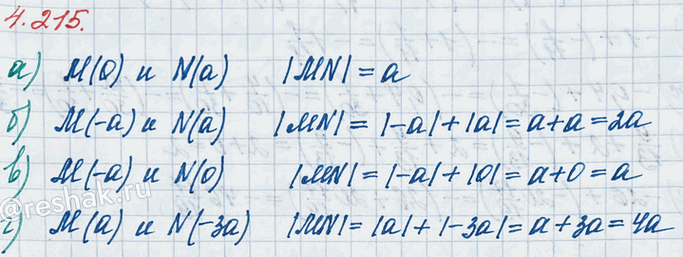 4.215.
а) M(0) и N(a) |MN| = a
б) M(-a) и N(a) |MN| = |-a| + |a| = a + a = 2a
в) M(-a) и N(0) |MN| = |-a| + |0| = a + 0 = a
г) M(a) и N(-3a) |MN| = |a| + |-3a| = a + 3a = 4a
@reshak.ru